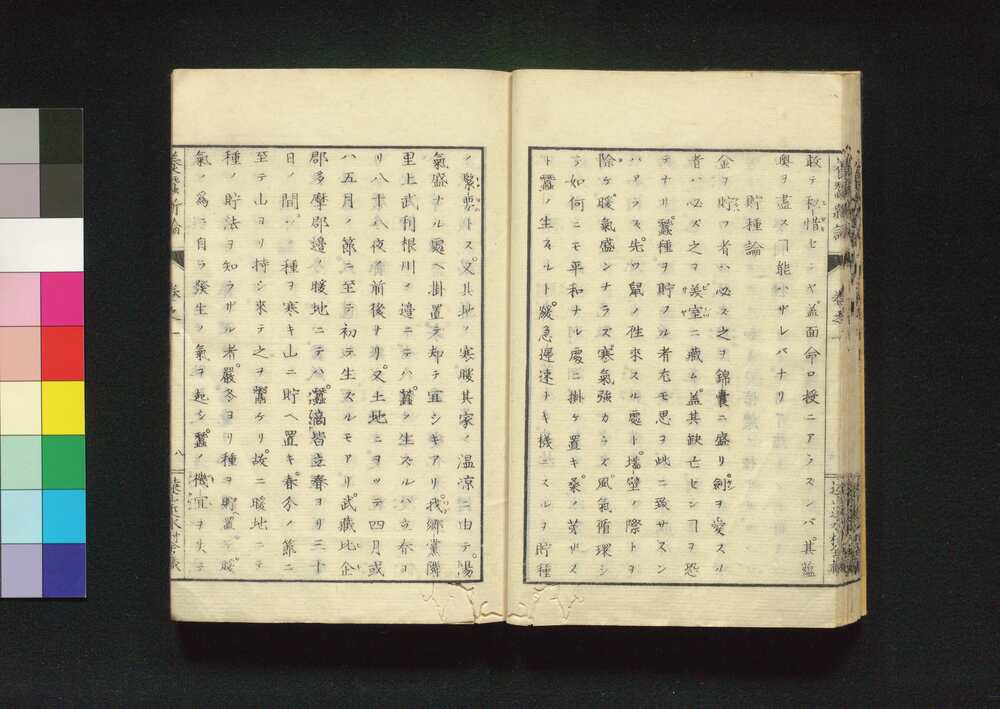 敢テ秘惜センヤ盖面命口授ニアラズンバ其蘊
奥ヲ盡スヿ能ハザレバナリ
貯種論
金ヲ貯フ者ハ必ス之ヲ錦囊ニ盛リ劍ヲ愛スル
者ハ必ズ之ヲ美室ニ藏ム盖其缺亡センヿヲ恐
テナリ蠶種ヲ貯フル者尤モ思ヲ此ニ致サズン
ハアラズ先ツ鼠ノ徃來スル處ト墻壁ノ際トヲ
除ケ暖氣盛ンナラズ寒氣強カラズ風氣循環シ
テ如何ニモ平和ナル處ニ掛ケ置キ桑ノ芽リス
ト蠶ノ生ズルト緩急遲速ナキ樣ニスルヲ貯種
ノ緊要トス又其地ノ寒暖其家ノ温涼ニ由テ陽
氣盛ナル處ヘ掛置テ却テ宜シキアリ我郷黨隣
里上武利根川ノ邉ニテハ蠶ノ生ズルハ立春ヨ
リ八十八夜ノ前後ナリ又土地ニヨツテ四月或
ハ五月ノ節ニ至テ初テ生ズルモアリ武藏比企
郡多摩郡邉ノ暖地ニテハ蠶漉皆立春ヨリ三十
日ノ間ニ種ヲ寒キ山ニ貯ヘ置キ春分ノ節ニ
至テ山ヨリ持シ來テ之ヲ鬻ケリ故ニ暖地ニテ
種ノ貯法ヲ知ラザル者嚴冬ヨリ種ヲ貯置テ暖
氣ノ爲ニ自ラ發生ノ氣ヲ起シ蠶ノ機宜ヲ失テ
養蠶新論
卷之一
八